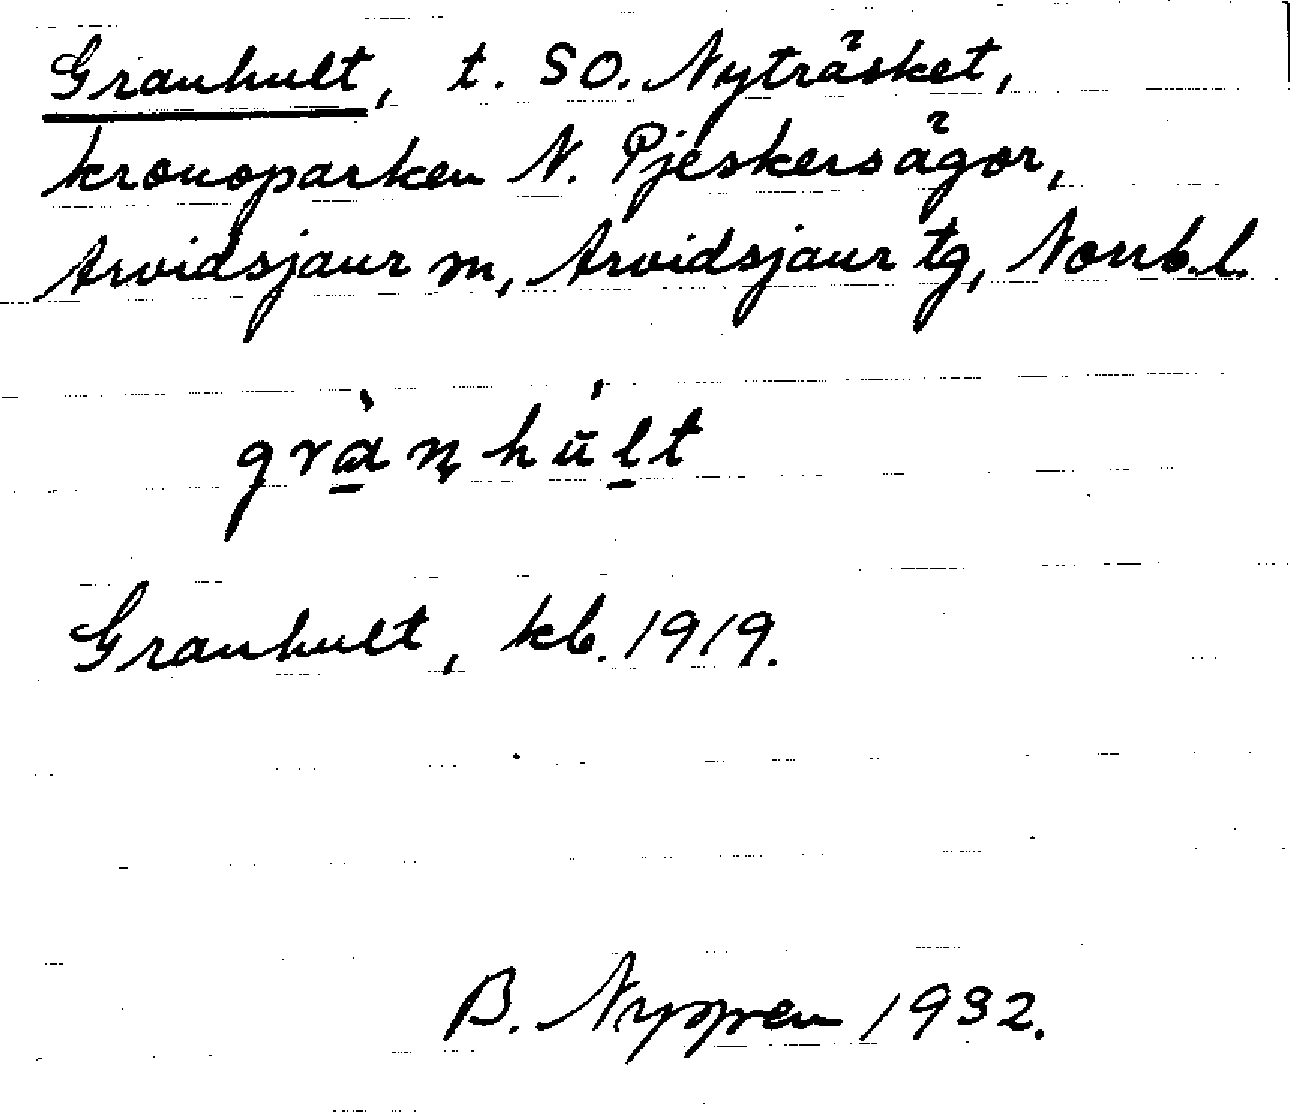 Granhult, t. SO. Nyträsket,
kronoparken N. Pjeskersägor,
Arvidsjaur m, Arvidsjaur tg, Norrb.l.
gràn̥hú̆l̠t
Granhult, kb. 1919.
B. 1932.